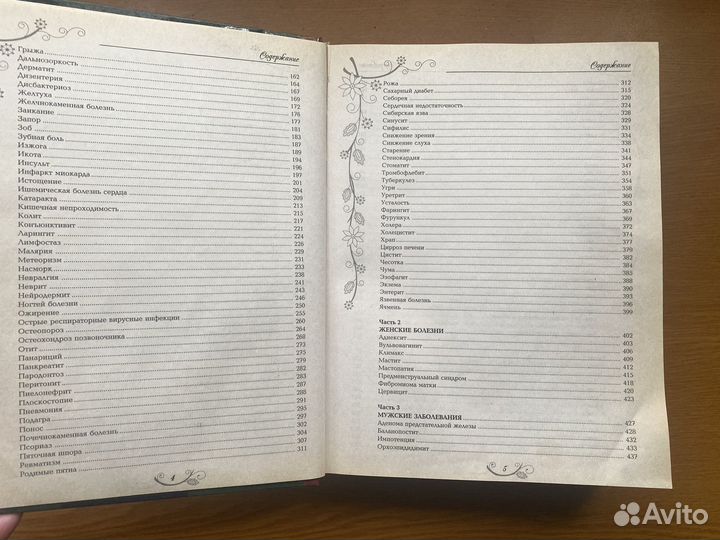 Содержание
Грыжа 162
Дальнозоркость 164
Дерматит 167
Дизентерия 169
Дисбактериоз 169
Желтуха 172
Желчнокаменная болезнь 176
Заикание 177
Запор 181
Зоб 183
Зубная боль 187
Изжога 189
Икота 194
Инсульт 196
Инфаркт миокарда 197
Истощение 201
Ишемическая болезнь сердца 204
Катаракта 209
Кишечная непроходимость 213
Колит 215
Конъюнктивит 217
Ларингит 221
Лимфостаз 224
Малярия 226
Метеоризм 229
Насморк 231
Невралгия 233
Неврит 238
Нейродермит 241
Ногтей болезни 243
Ожирение 246
Острые респираторные вирусные инфекции 250
Остеопороз 255
Остеохондроз позвоночника 260
Отит 264
Панариций 268
Панкреатит 273
Пародонтоз 275
Перитонит 279
Пиелонефрит 283
Плоскостопие 287
Пневмония 291
Подагра 295
Понос 297
Почечнокаменная болезнь 302
Псориаз 304
Пяточная шпора 307
Ревматизм 311
Родимые пятна
4
Содержание
Рожа 312
Сахарный диабет 315
Себорея 320
Сердечная недостаточность 324
Сибирская язва 328
Синусит 329
Сифилис 331
Снижение зрения 334
Снижение слуха 338
Старение 341
Стенокардия 344
Стоматит 347
Тромбофлебит 351
Туберкулез 354
Угри 358
Уретрит 360
Усталость 363
Фарингит 367
Фурункул 369
Холера 372
Холецистит 374
Храп 377
Цирроз печени 379
Цистит 382
Чесотка 385
Чума 388
Эзофагит 390
Экзема 393
Энтерит 396
Язвенная болезнь 399
Ячмень
Часть 2
ЖЕНСКИЕ БОЛЕЗНИ 402
Аднексит 403
Вульвовагинит 406
Климакс 409
Мастит 412
Мастопатия 415
Предменструальный синдром 418
Фибромиома матки 420
Цервицит 423
Часть 3
МУЖСКИЕ ЗАБОЛЕВАНИЯ 427
Аденома предстательной железы 428
Баланопостит 432
Импотенция 433
Орхоэпидидимит 437
5
Avito